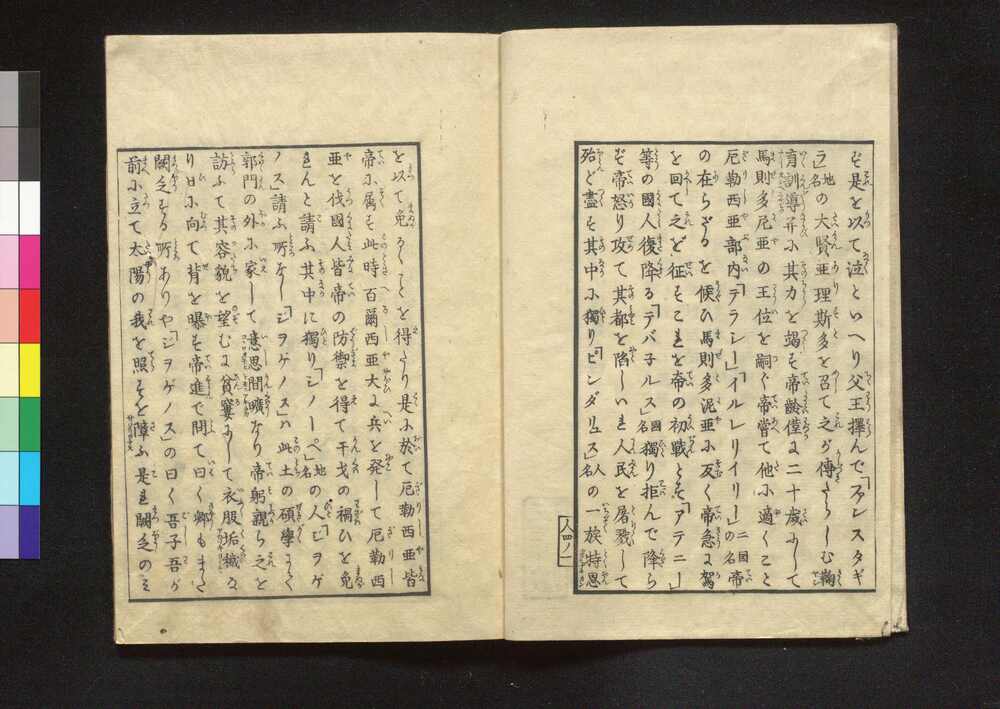 ず是を以て泣といへり父王擇んで「ファンスタギ
ラ」地名の大賢亜理斯多を召て之が傅たらしむ鞠
育訓導并に其力を竭す帝齢僅に二十歳にして
馬則多尼亜の王位を嗣ぐ帝嘗て他に適くこと
厄勒西亜部内「テラシー」「イルレリイリー」二国の名帝
の在らざるを候ひ馬則多泥亜に反く帝急に駕
を回て之を征すこれを帝の初戦とす「アテニー」
等の國人復降る「テバ子ルス」国名獨り拒んで降ら
ず帝怒り攻て其都を陥しいれ人民を屠戮して
殆ど盡す其中に獨り「ピンダリュス」人名の一族特恩
人四ノ一
を以て免るゝことを得たり是に於て厄勒西亜皆
帝に属す此時百爾西亜大に兵を発して厄勒西
亜を伐國人皆帝の防禦を得て干戈の禍ひを免
れんと請ふ其中に獨り「シノーペ」地名の人「ジヲゲ
ノス」請ふ所なし「ジヲゲノス」ハ此土の碩學にて
郭門の外に家して意思間曠なり帝躬親ら之を
訪ふて其容貌を望むに貧窶にして衣服垢穢な
り日に向て背を曝す帝進で問て曰く卿もまた
闕乏する所ありや「ジヲゲノス」の曰く吾子吾が
前に立て太陽の我を照すを障ふ是れ闕乏のミ